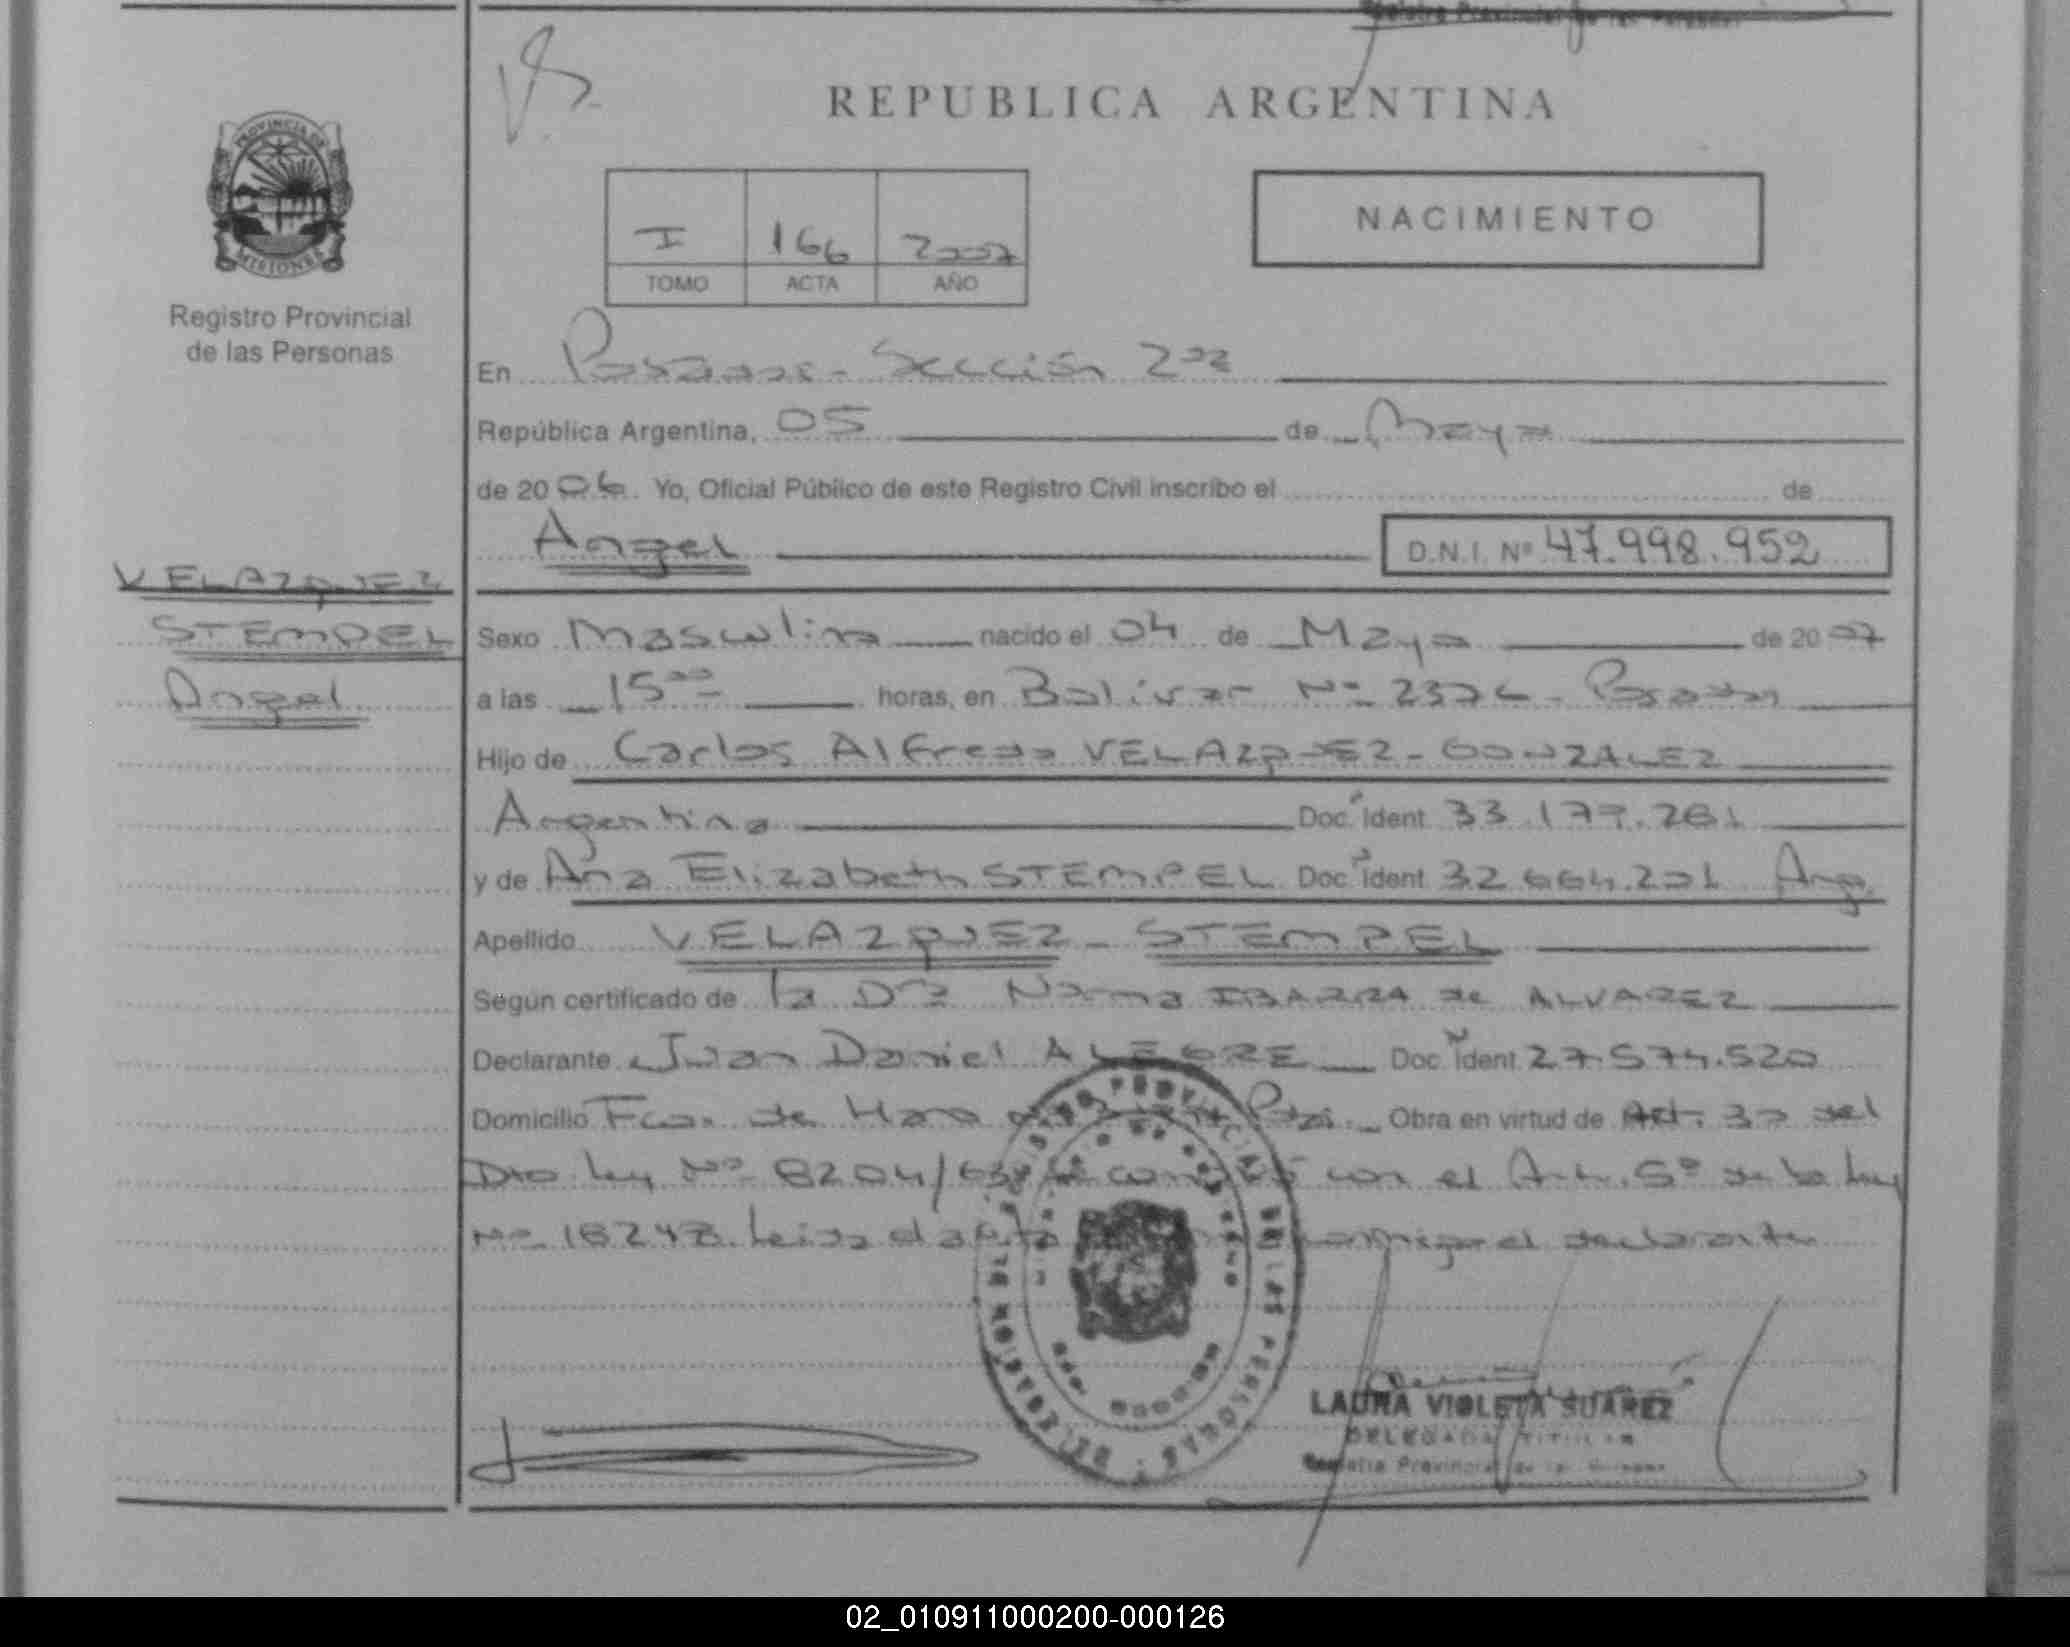 REPUBLICA ARGENTINA
PROVINCIA DE
MISIONES
Registro Provincial
de las Personas
I 166 2007
TOMO ACTA AÑO
NACIMIENTO
En Posadas - Sección 2da
República Argentina, 05 de Mayo
de 20 06. Yo, Oficial Público de este Registro Civil inscribo el de
Angel D.N.I. Nº 47.998.952
VELAZQUEZ
STEMPEL
Angel
Sexo Masculino nacido el 04 de Mayo de 20 07
a las 15 00 horas, en Bolivar Nº 2376 - Posadas
Hijo de Carlos Alfredo VELAZQUEZ - GONZALEZ
Argentino Doc. Ident. 33.177.261
y de Ana Elizabeth STEMPEL Doc. Ident. 32.664.201 Arg.
Apellido VELAZQUEZ - STEMPEL
Según certificado de la Dra Norma IBARRA de ALVAREZ
Declarante Juan Daniel ALEGRE Doc. Ident. 27.574.520
Domicilio Fco. de Haro Obra en virtud de Art. 30 del
Dto ley Nº 8204/63 con el Art. 5º de la ley
Nº 18248. Leida el acta el declarante
LAURA VIOLETA SUAREZ
DELEGADA TITULAR
Registro Provincial de las Personas
02_010911000200-000126